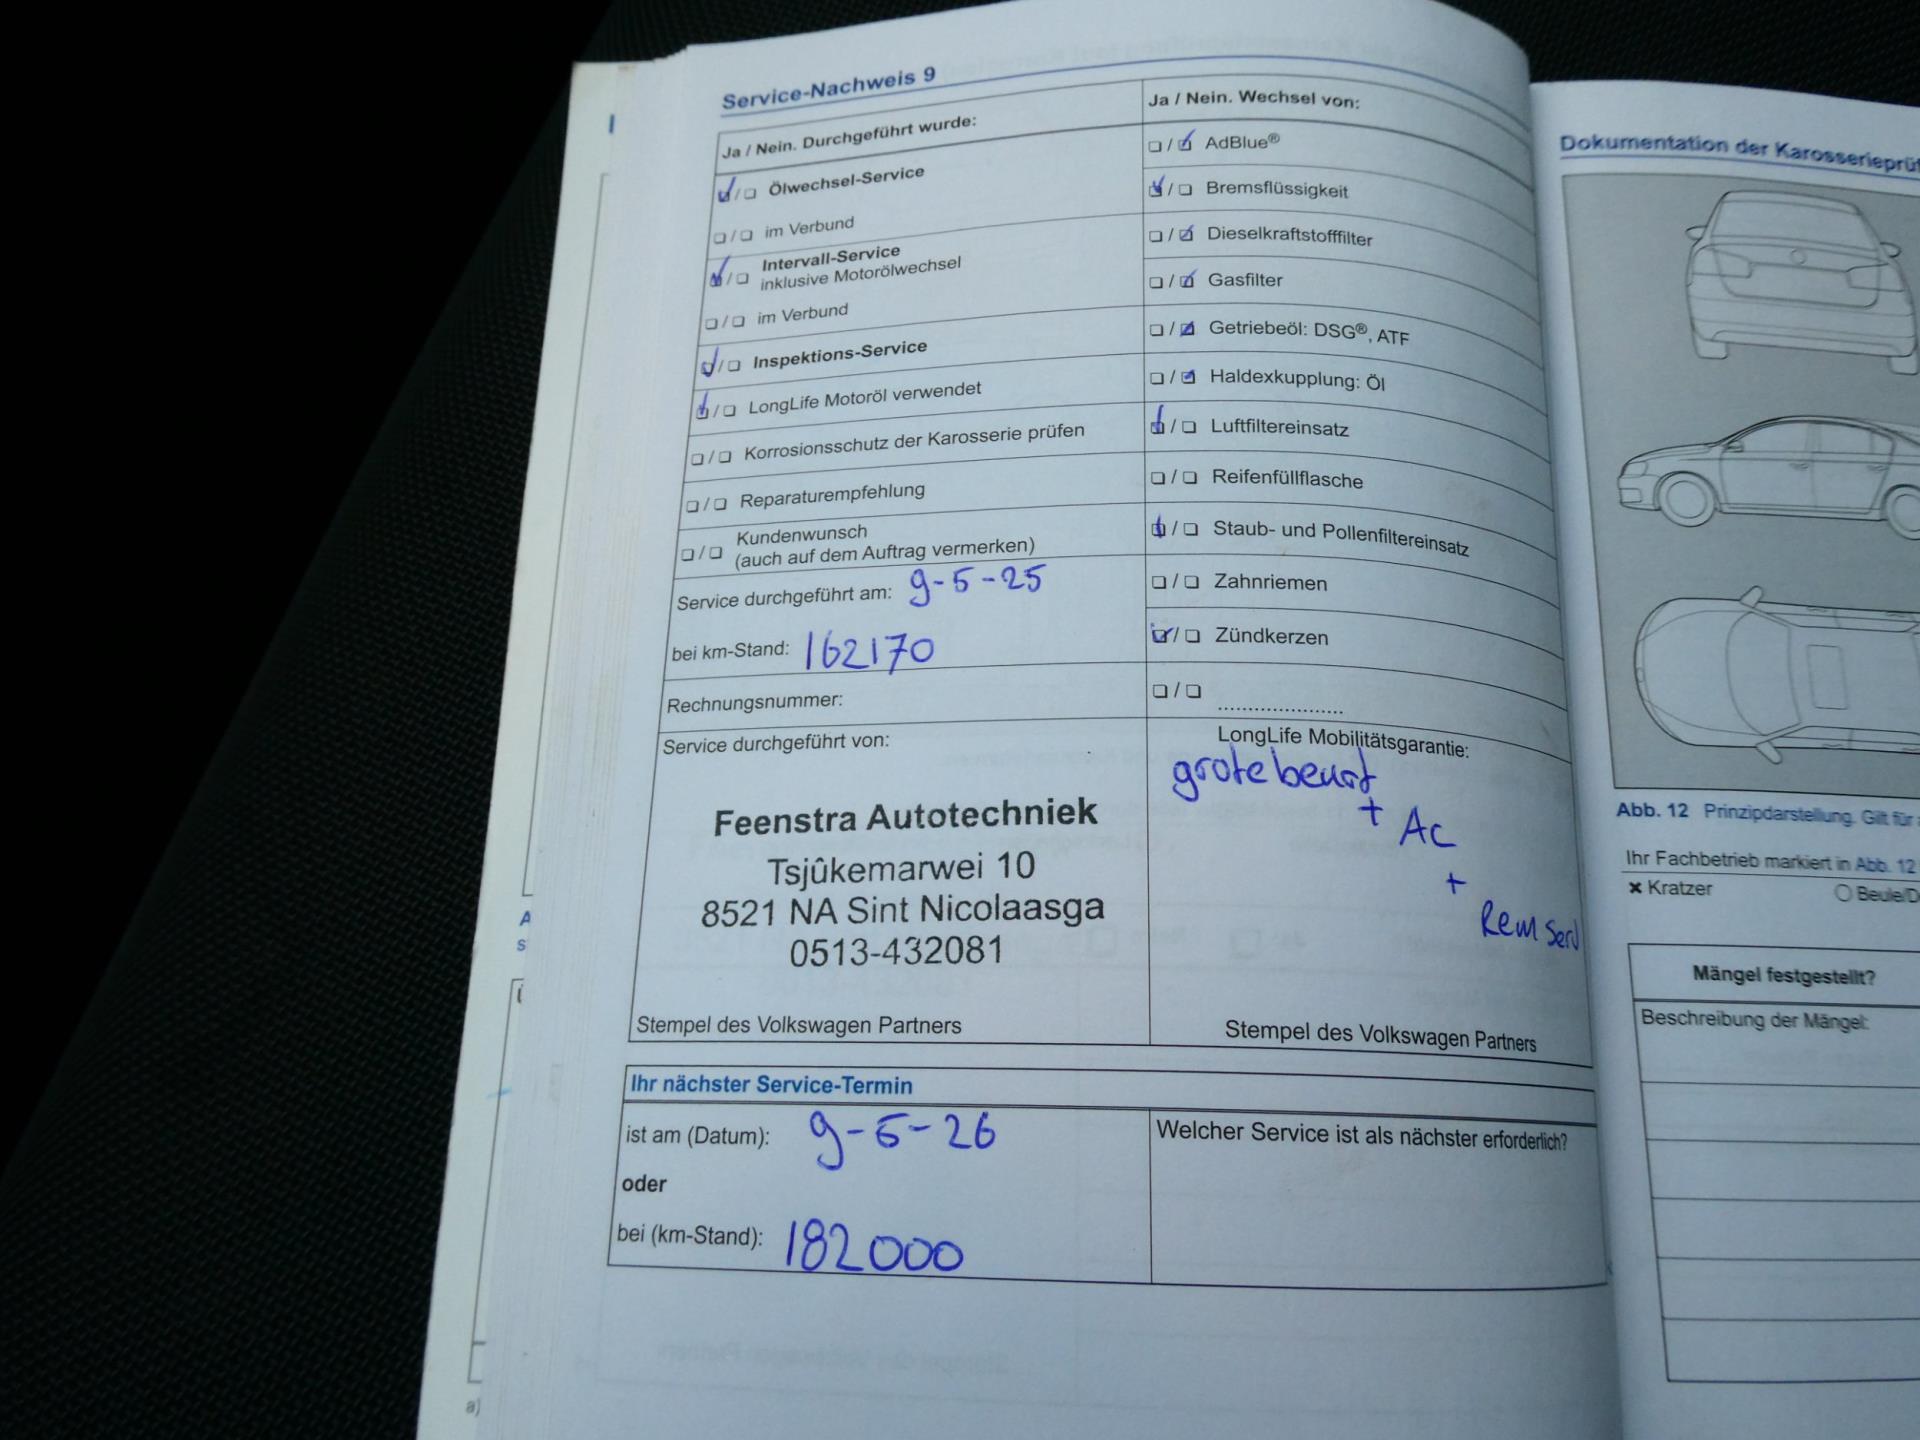 Service-Nachweis 9
Ja / Nein. Durchgeführt wurde:
Ölwechsel-Service
im Verbund
Intervall-Service
inklusive Motorölwechsel
im Verbund
Inspektions-Service
LongLife Motoröl verwendet
Korrosionsschutz der Karosserie prüfen
Reparaturempfehlung
Kundenwunsch
(auch auf dem Auftrag vermerken)
Service durchgeführt am: 9-5-25
bei km-Stand: 162170
Rechnungsnummer:
Service durchgeführt von:
Feenstra Autotechniek
Tsjûkemarwei 10
8521 NA Sint Nicolaasga
0513-432081
Stempel des Volkswagen Partners
Ja / Nein. Wechsel von:
AdBlue®
Bremsflüssigkeit
Dieselkraftstofffilter
Gasfilter
Getriebeöl: DSG®, ATF
Haldexkupplung: Öl
Luftfiltereinsatz
Reifenfüllflasche
Staub- und Pollenfiltereinsatz
Zahnriemen
Zündkerzen
.....................
LongLife Mobilitätsgarantie:
grote beurt
+ AC
+
Rem serv
Stempel des Volkswagen Partners
Ihr nächster Service-Termin
ist am (Datum): 9-5-26
oder
bei (km-Stand): 182000
Welcher Service ist als nächster erforderlich?
Dokumentation der
Abb. 12 Prinzipdarstellung. Gilt für
Ihr Fachbetrieb markiert in Abb. 12
Kratzer
Mängel festgestellt?
Beschreibung der Mängel:
a)